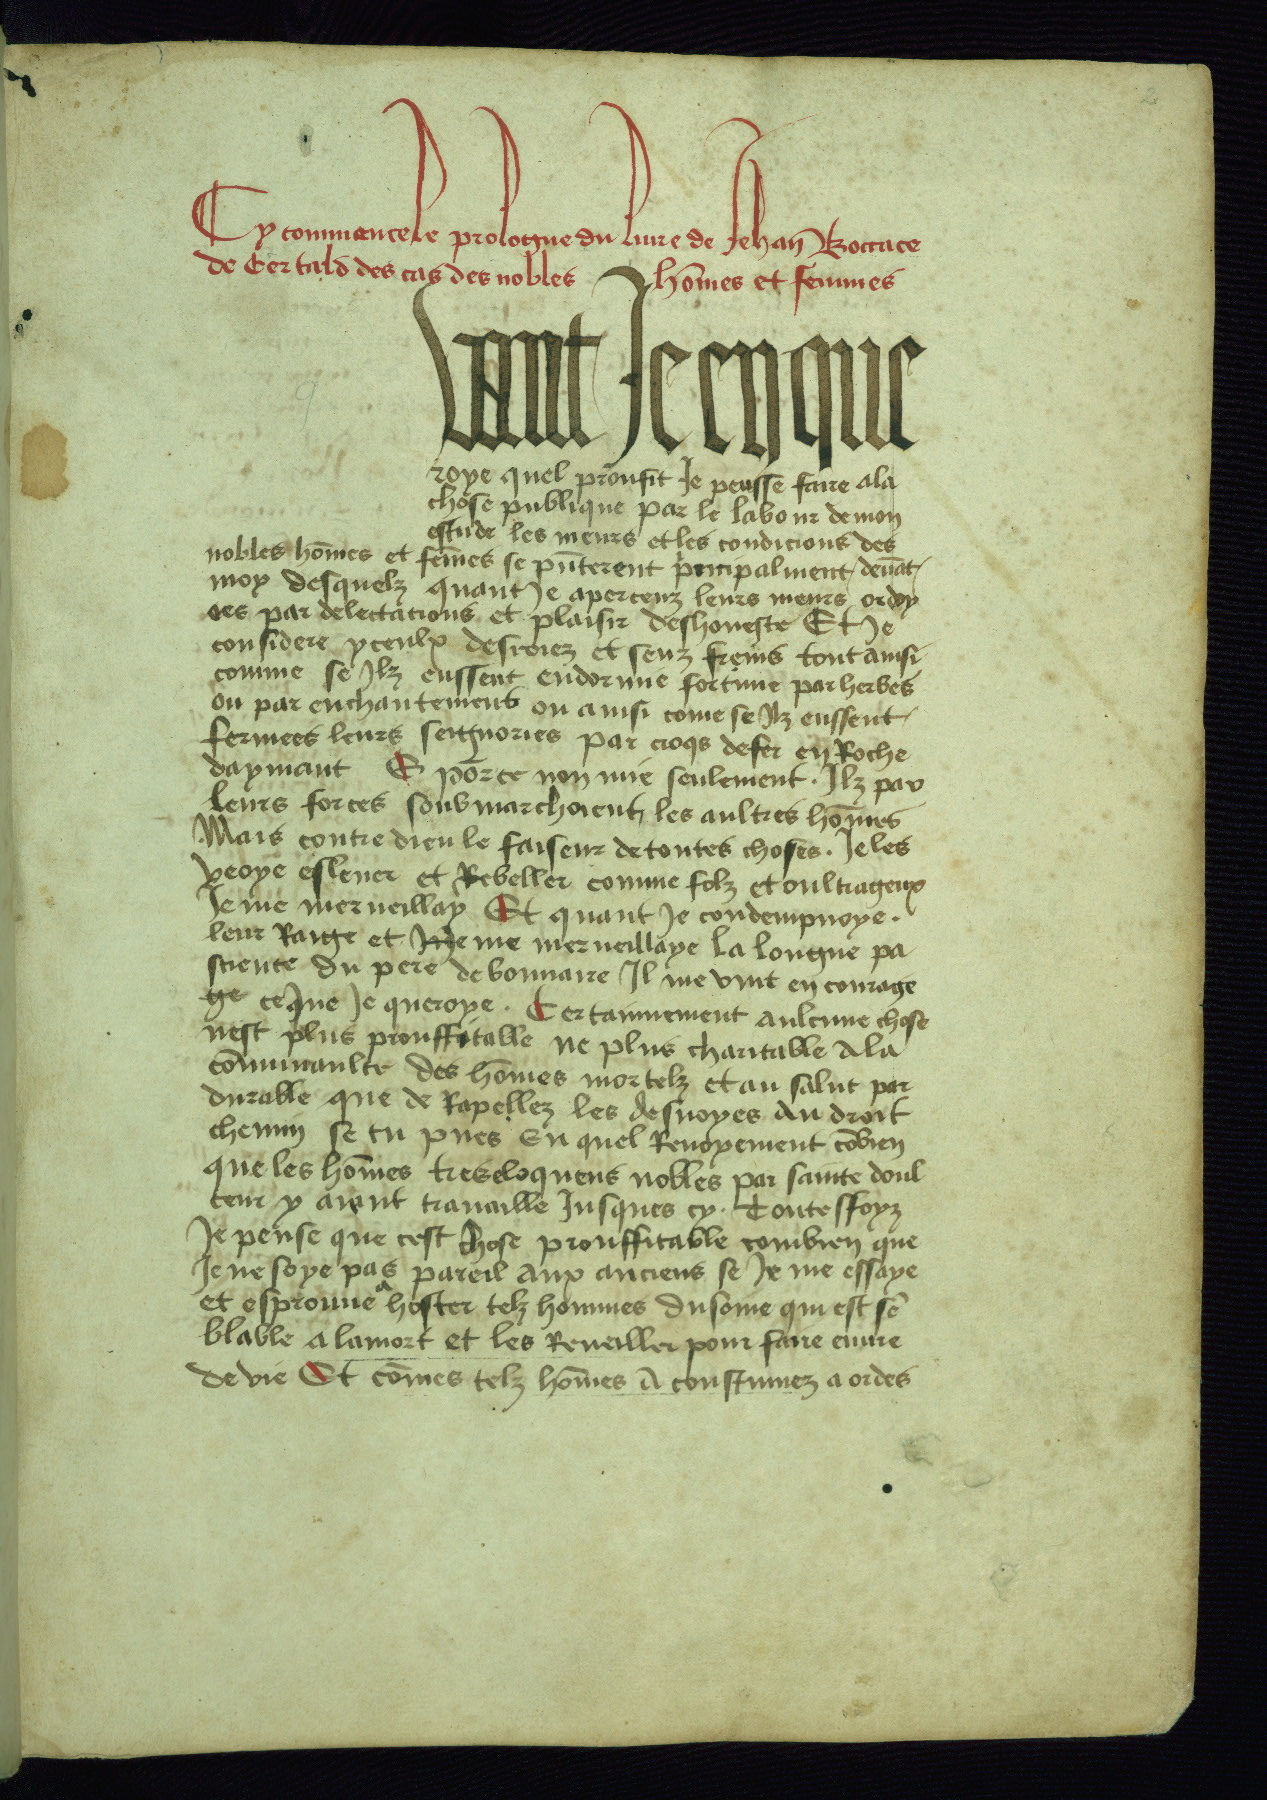 Cy commence le prologue du liure de Jehan Boccace
de Certald des cas des nobles hōmes et femmes
uant Je enque
roye quel prouffit Je peusse faire ala
chose publique par le labour de mon
estude les meurs et les condicions des
nobles hōmes et fēmes se pñterent pncipalment deuāt
moy desquelz quant Je aperceuz leurs meurs ordoy
ees par delectacions et plaisir deshoneste Et Je
considere yceulx desroiez et senz freins tout ainsi
comme se Ilz eussent endormie fortune par herbes
ou par enchantemens ou ainsi come se Ilz eussent
fermees leurs seignories par croqs de fer en Roche
daymant Et pōr ce non mie seulement. Ilz par
leurs forces soubmarchoient les aultres hōmes
Mais contre dieu le faiseur de toutes choses. Je les
veoye esleuer et Rebeller comme folz et oultrageux
Je me merueillay Et quant Je condempnoye.
leur Raige et Je me merueillaye la longue pa
science du pere debonnaire Il me vint en courage
ge ce que Je queroye. Certainnement aulcune chose
nest plus prouffitable ne plus charitable a la
cōmunaulte des hōmes mortelz et au salut par
durable que de Rapellez les desuoyes au droit
chemin se tu pues En quel Renoyement cōbien
que les hōmes treseloquens nobles par sainte doul
ceur y aient trauaille Jusques cy. Toutesfoyz
Je pense que cest chose prouffitable combien que
Je ne soye pas pareil aux anciens se Je me essaye
et esprouue a hoster telz hommes du some qui est sē
blable a la mort et les Reueiller pour faire euure
de vie Et cōmes telz hōmes A coustumez a ordes